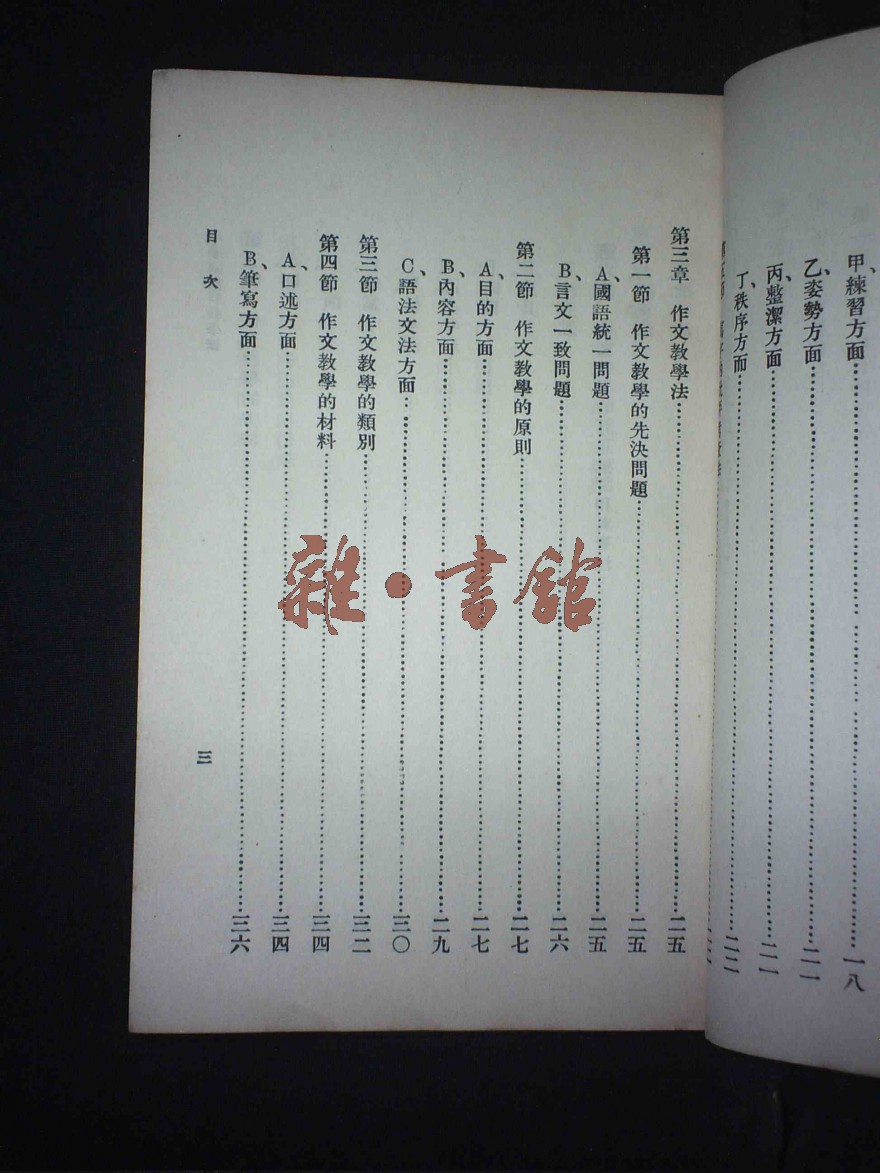 甲、練習方面…………一八
乙、姿勢方面…………二一
丙、整潔方面…………二一
丁、秩序方面…………二二
第三章 作文教學法…………二五
第一節 作文教學的先決問題…………二五
A、國語統一問題…………二五
B、言文一致問題…………二六
第二節 作文教學的原則…………二七
A、目的方面…………二七
B、內容方面…………二九
C、語法文法方面…………三〇
第三節 作文教學的類別…………三二
第四節 作文教學的材料…………三四
A、口述方面…………三四
B、筆寫方面…………三六
目次
三
雜·書館